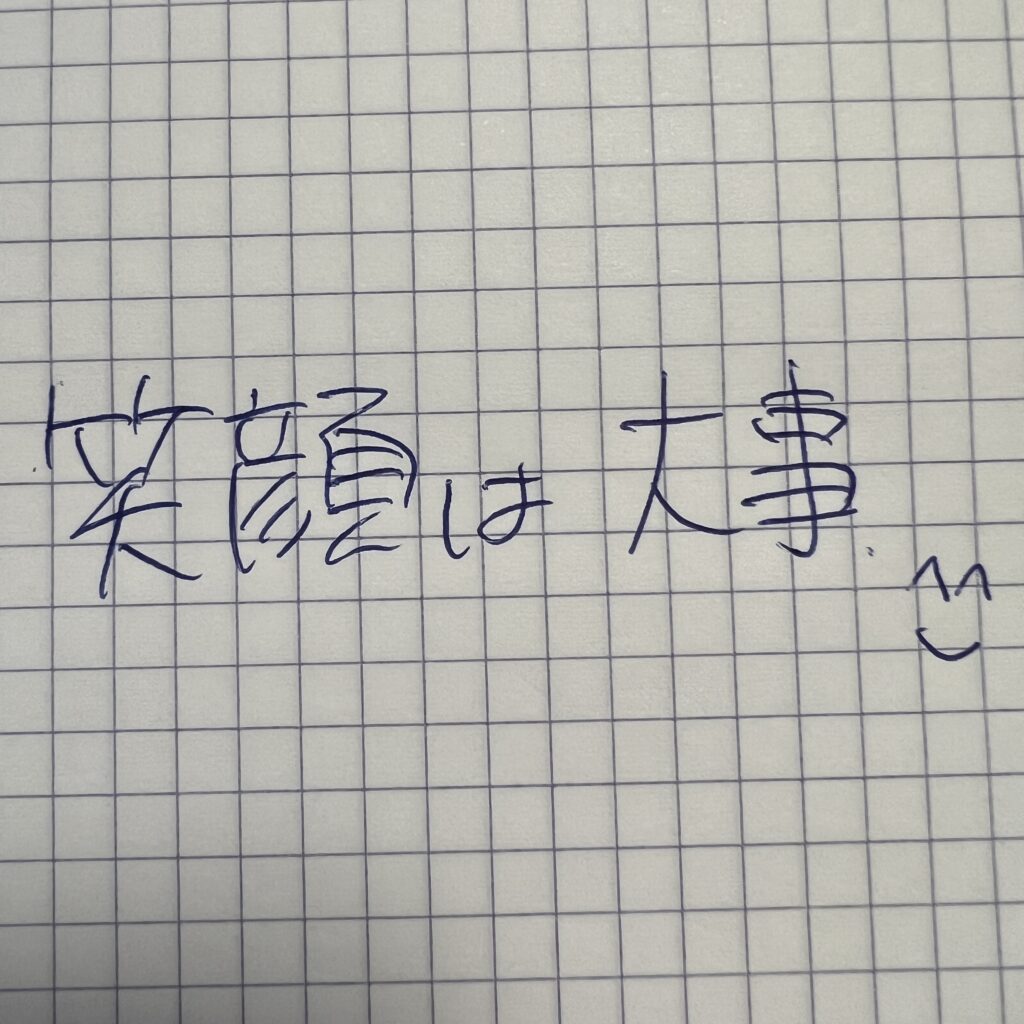 笑顔は大事.